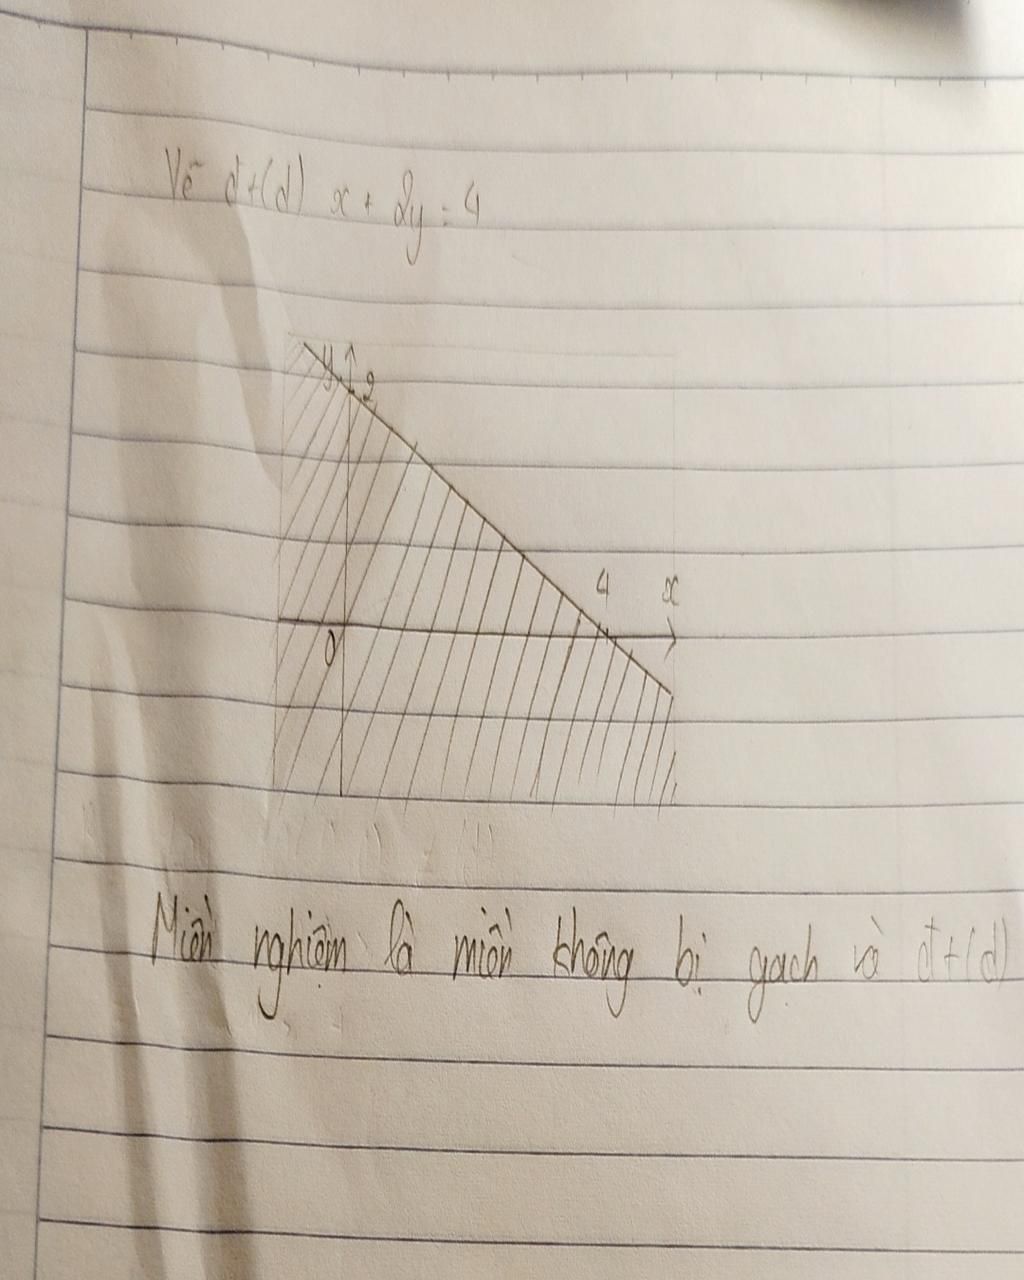 Vẽ đt(d) x + 2y = 4
y 2
4 x
0
Miền nghiệm là miền không bị gạch và đt(d)